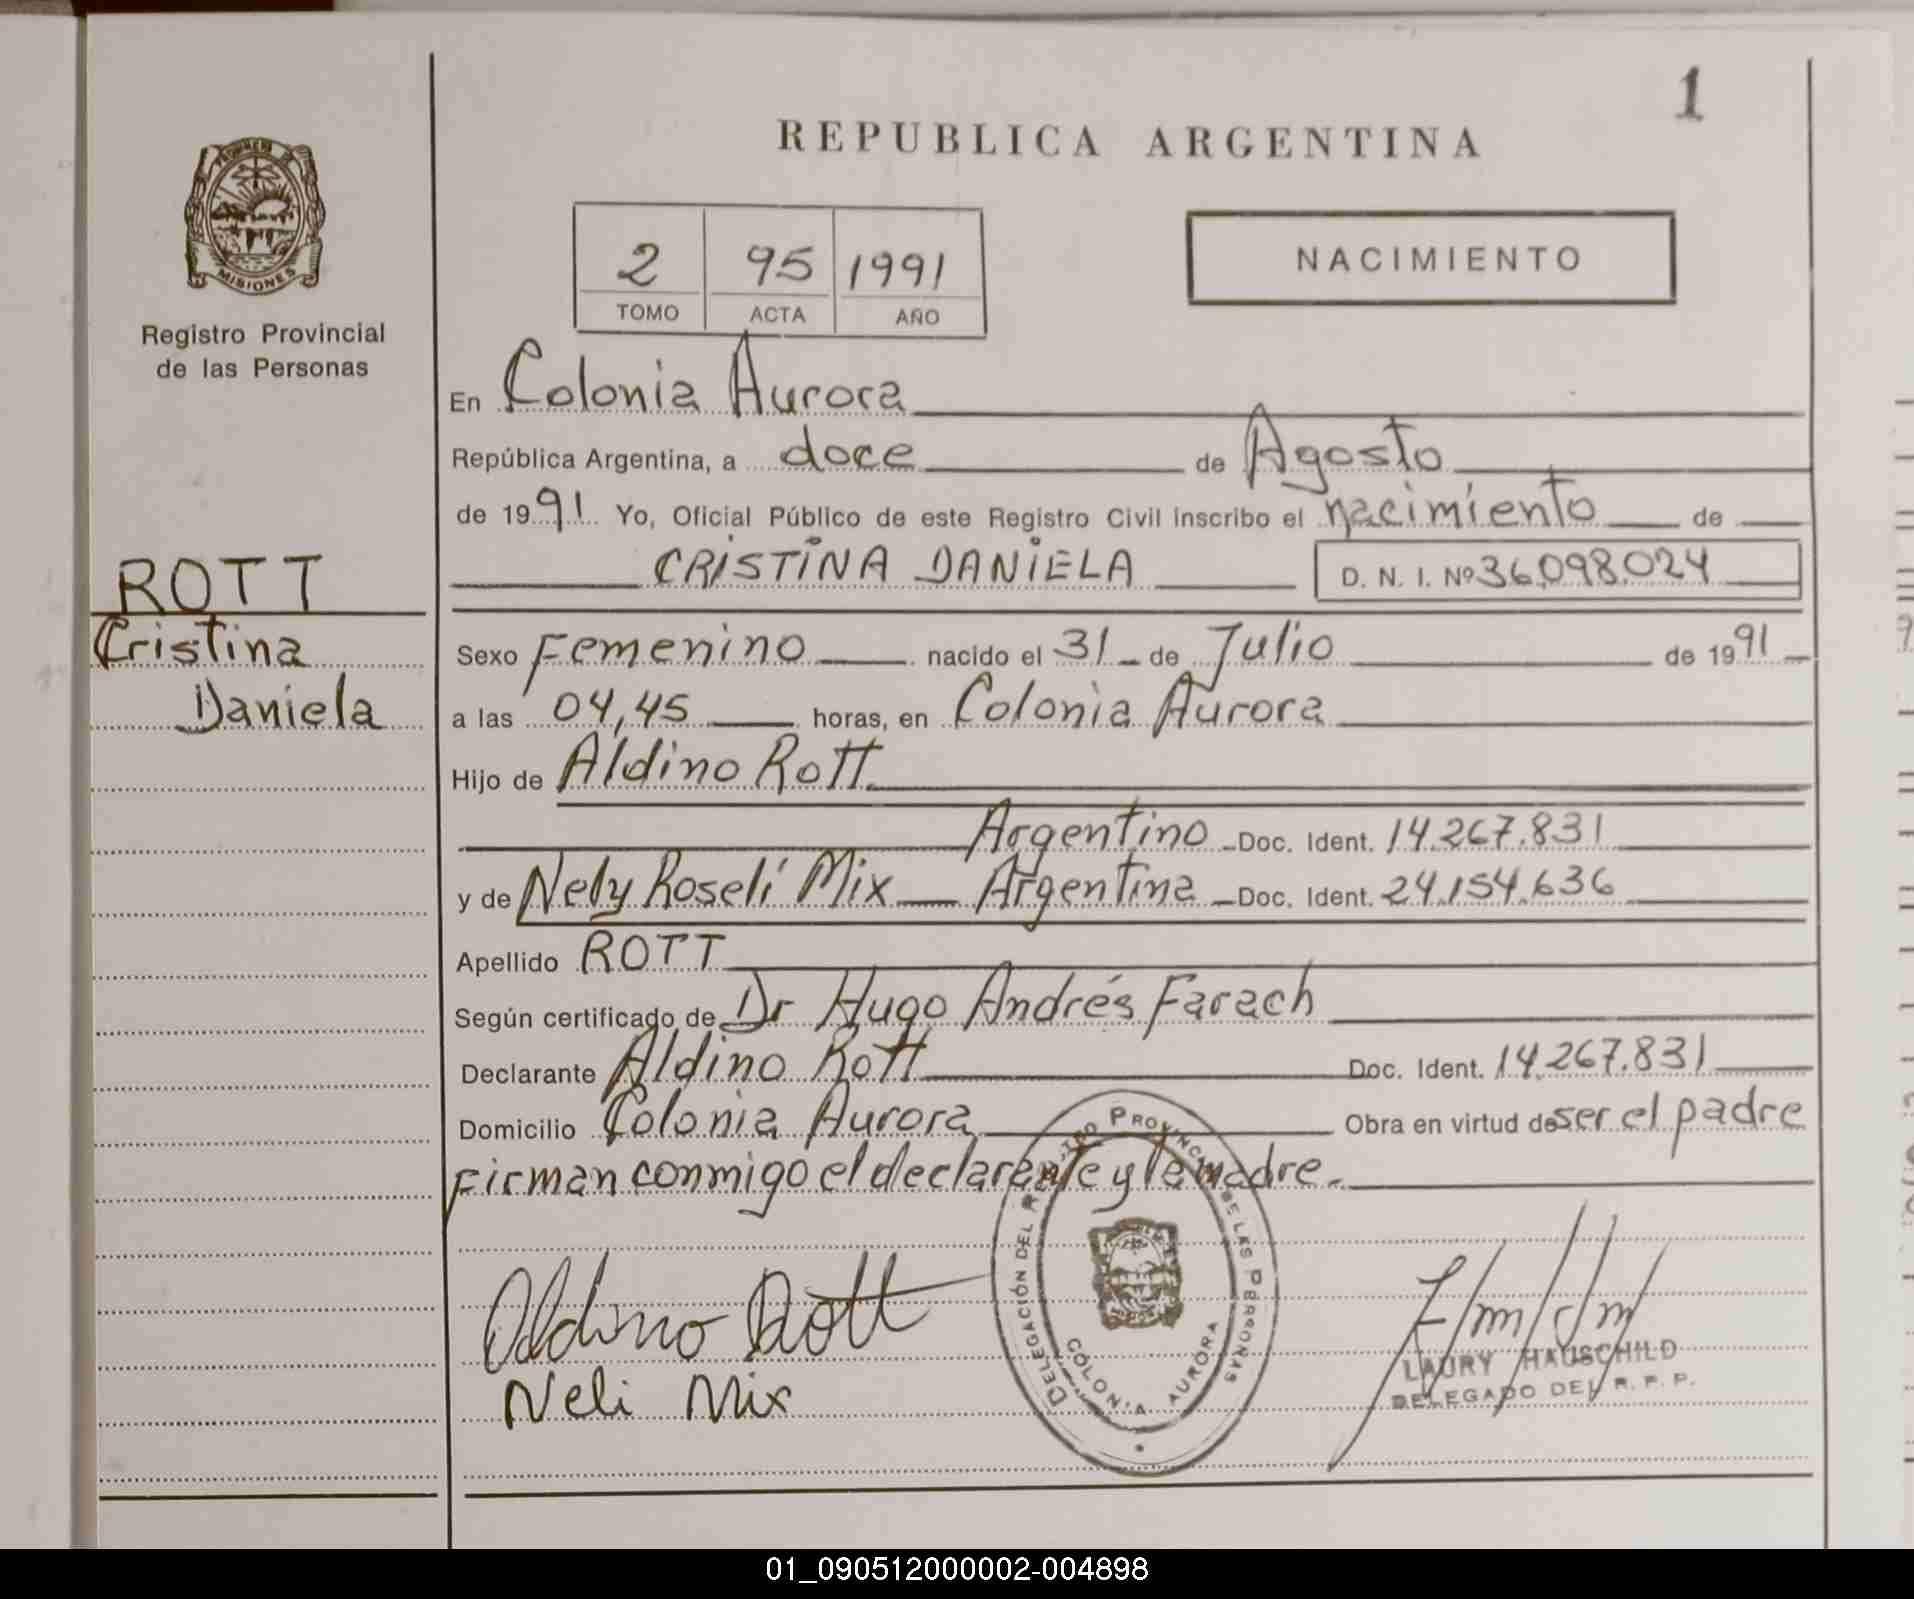 1
REPUBLICA ARGENTINA
MISIONES
Registro Provincial
de las Personas
2 95 1991
TOMO ACTA AÑO
NACIMIENTO
En Colonia Aurora
República Argentina, a doce de Agosto
de 1991 Yo, Oficial Público de este Registro Civil inscribo el nacimiento de
CRISTINA DANIELA D. N. I. Nº 36.098.024
ROTT
Cristina
Daniela
Sexo Femenino nacido el 31 de Julio de 1991
a las 04,45 horas, en Colonia Aurora
Hijo de Aldino Rott
Argentino Doc. Ident. 14.267.831
y de Nely Roselí Mix Argentina Doc. Ident. 24.154.636
Apellido ROTT
Según certificado de Dr Hugo Andrés Farach
Declarante Aldino Rott Doc. Ident. 14.267.831
Domicilio Colonia Aurora Obra en virtud de ser el padre
Firman conmigo el declarante y la madre.
DELEGACIÓN DEL REGISTRO PROVINCIAL DE LAS PERSONAS
COLONIA AURORA
Aldino Rott
Neli Mix
LAURY HAUSCHILD
DELEGADO DEL R. P. P.
01_090512000002-004898